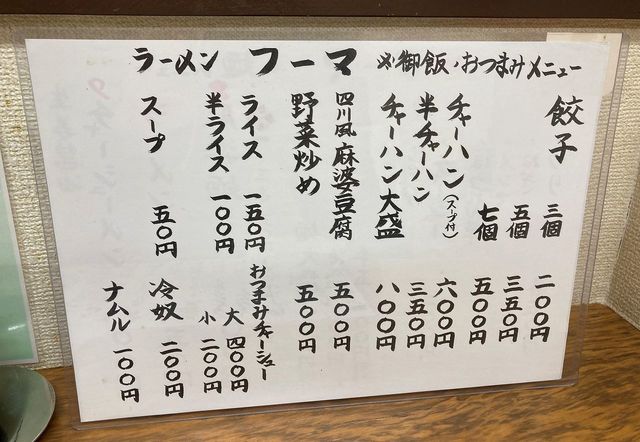 ラーメン フーマ 御飯・おつまみメニュー
餃子 三個 二〇〇円
五個 三五〇円
七個 五〇〇円
チャーハン(スープ付) 六〇〇円
半チャーハン 三五〇円
チャーハン大盛 八〇〇円
四川風麻婆豆腐 五〇〇円
野菜炒め 五〇〇円
ライス 一五〇円
半ライス 一〇〇円
スープ 五〇円
おつまみチャーシュー
大 四〇〇円
小 二〇〇円
冷奴 二〇〇円
ナムル 一〇〇円